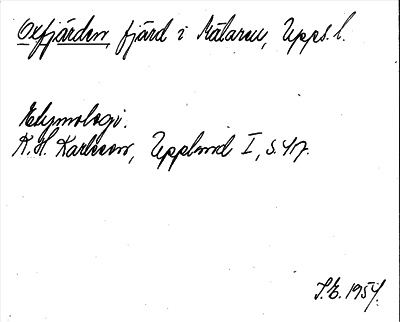 Oxfjärden, fjärd i Mälaren, Upps. l.
Etymologi.
K. H. Karlsson, Uppland I, s. 417.
S.E. 1954.